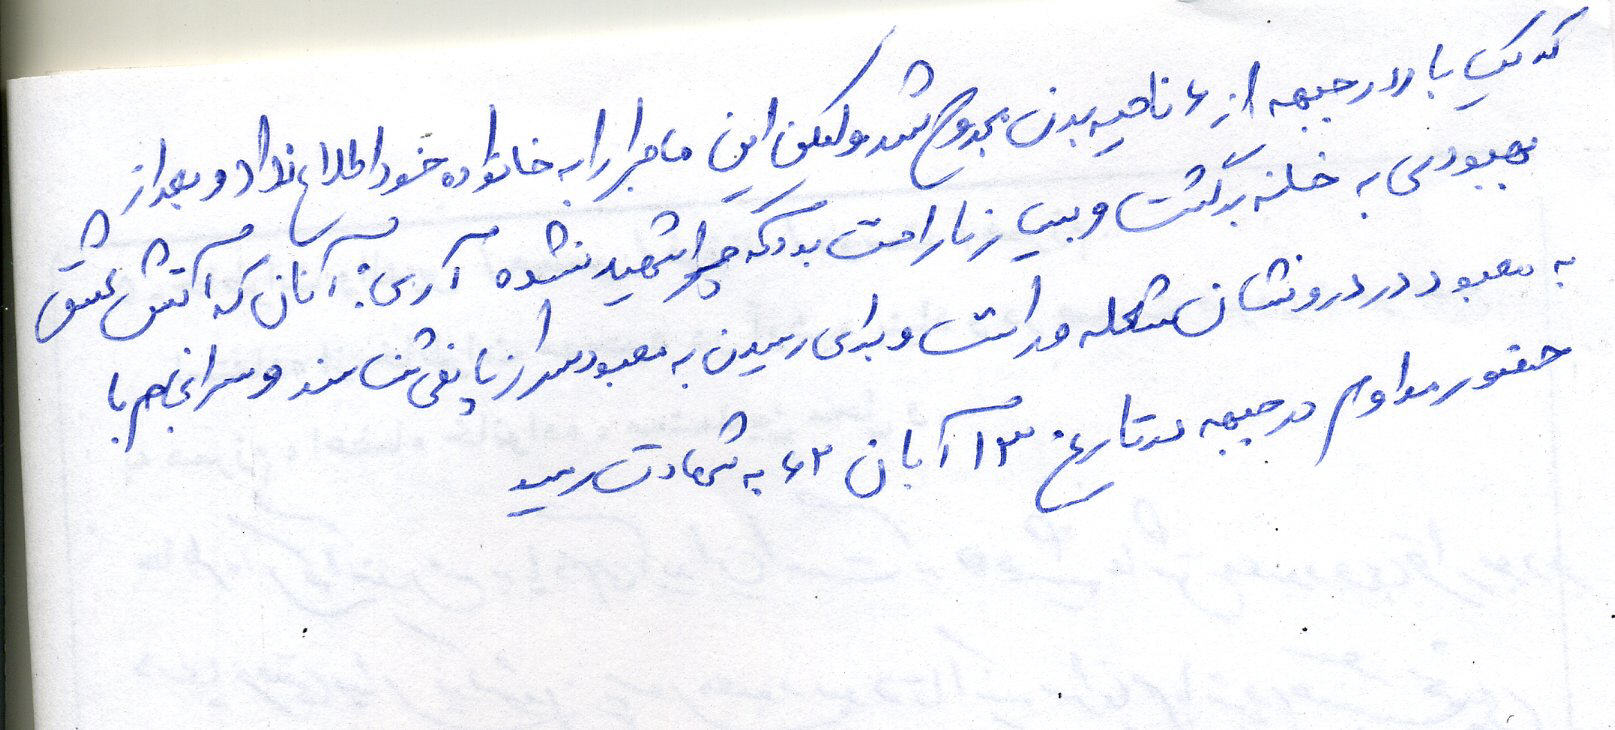 که یک بار در جبهه از ۶ ناحیه بدن مجروح شد ولیکن این ماجرا را به خانواده خود اطلاع نداد و بعد از
بهبودی به خانه برگشت و بسیار ناراحت بود که چرا شهید نشده آری؛ آنان که آتش عشق
به معبود در درونشان شعله ور است و برای رسیدن به معبود سر از پا نمی شناسند و سرانجام با
حضور مداوم در جبهه در تاریخ ۱۳ آبان ۶۲ به شهادت رسید